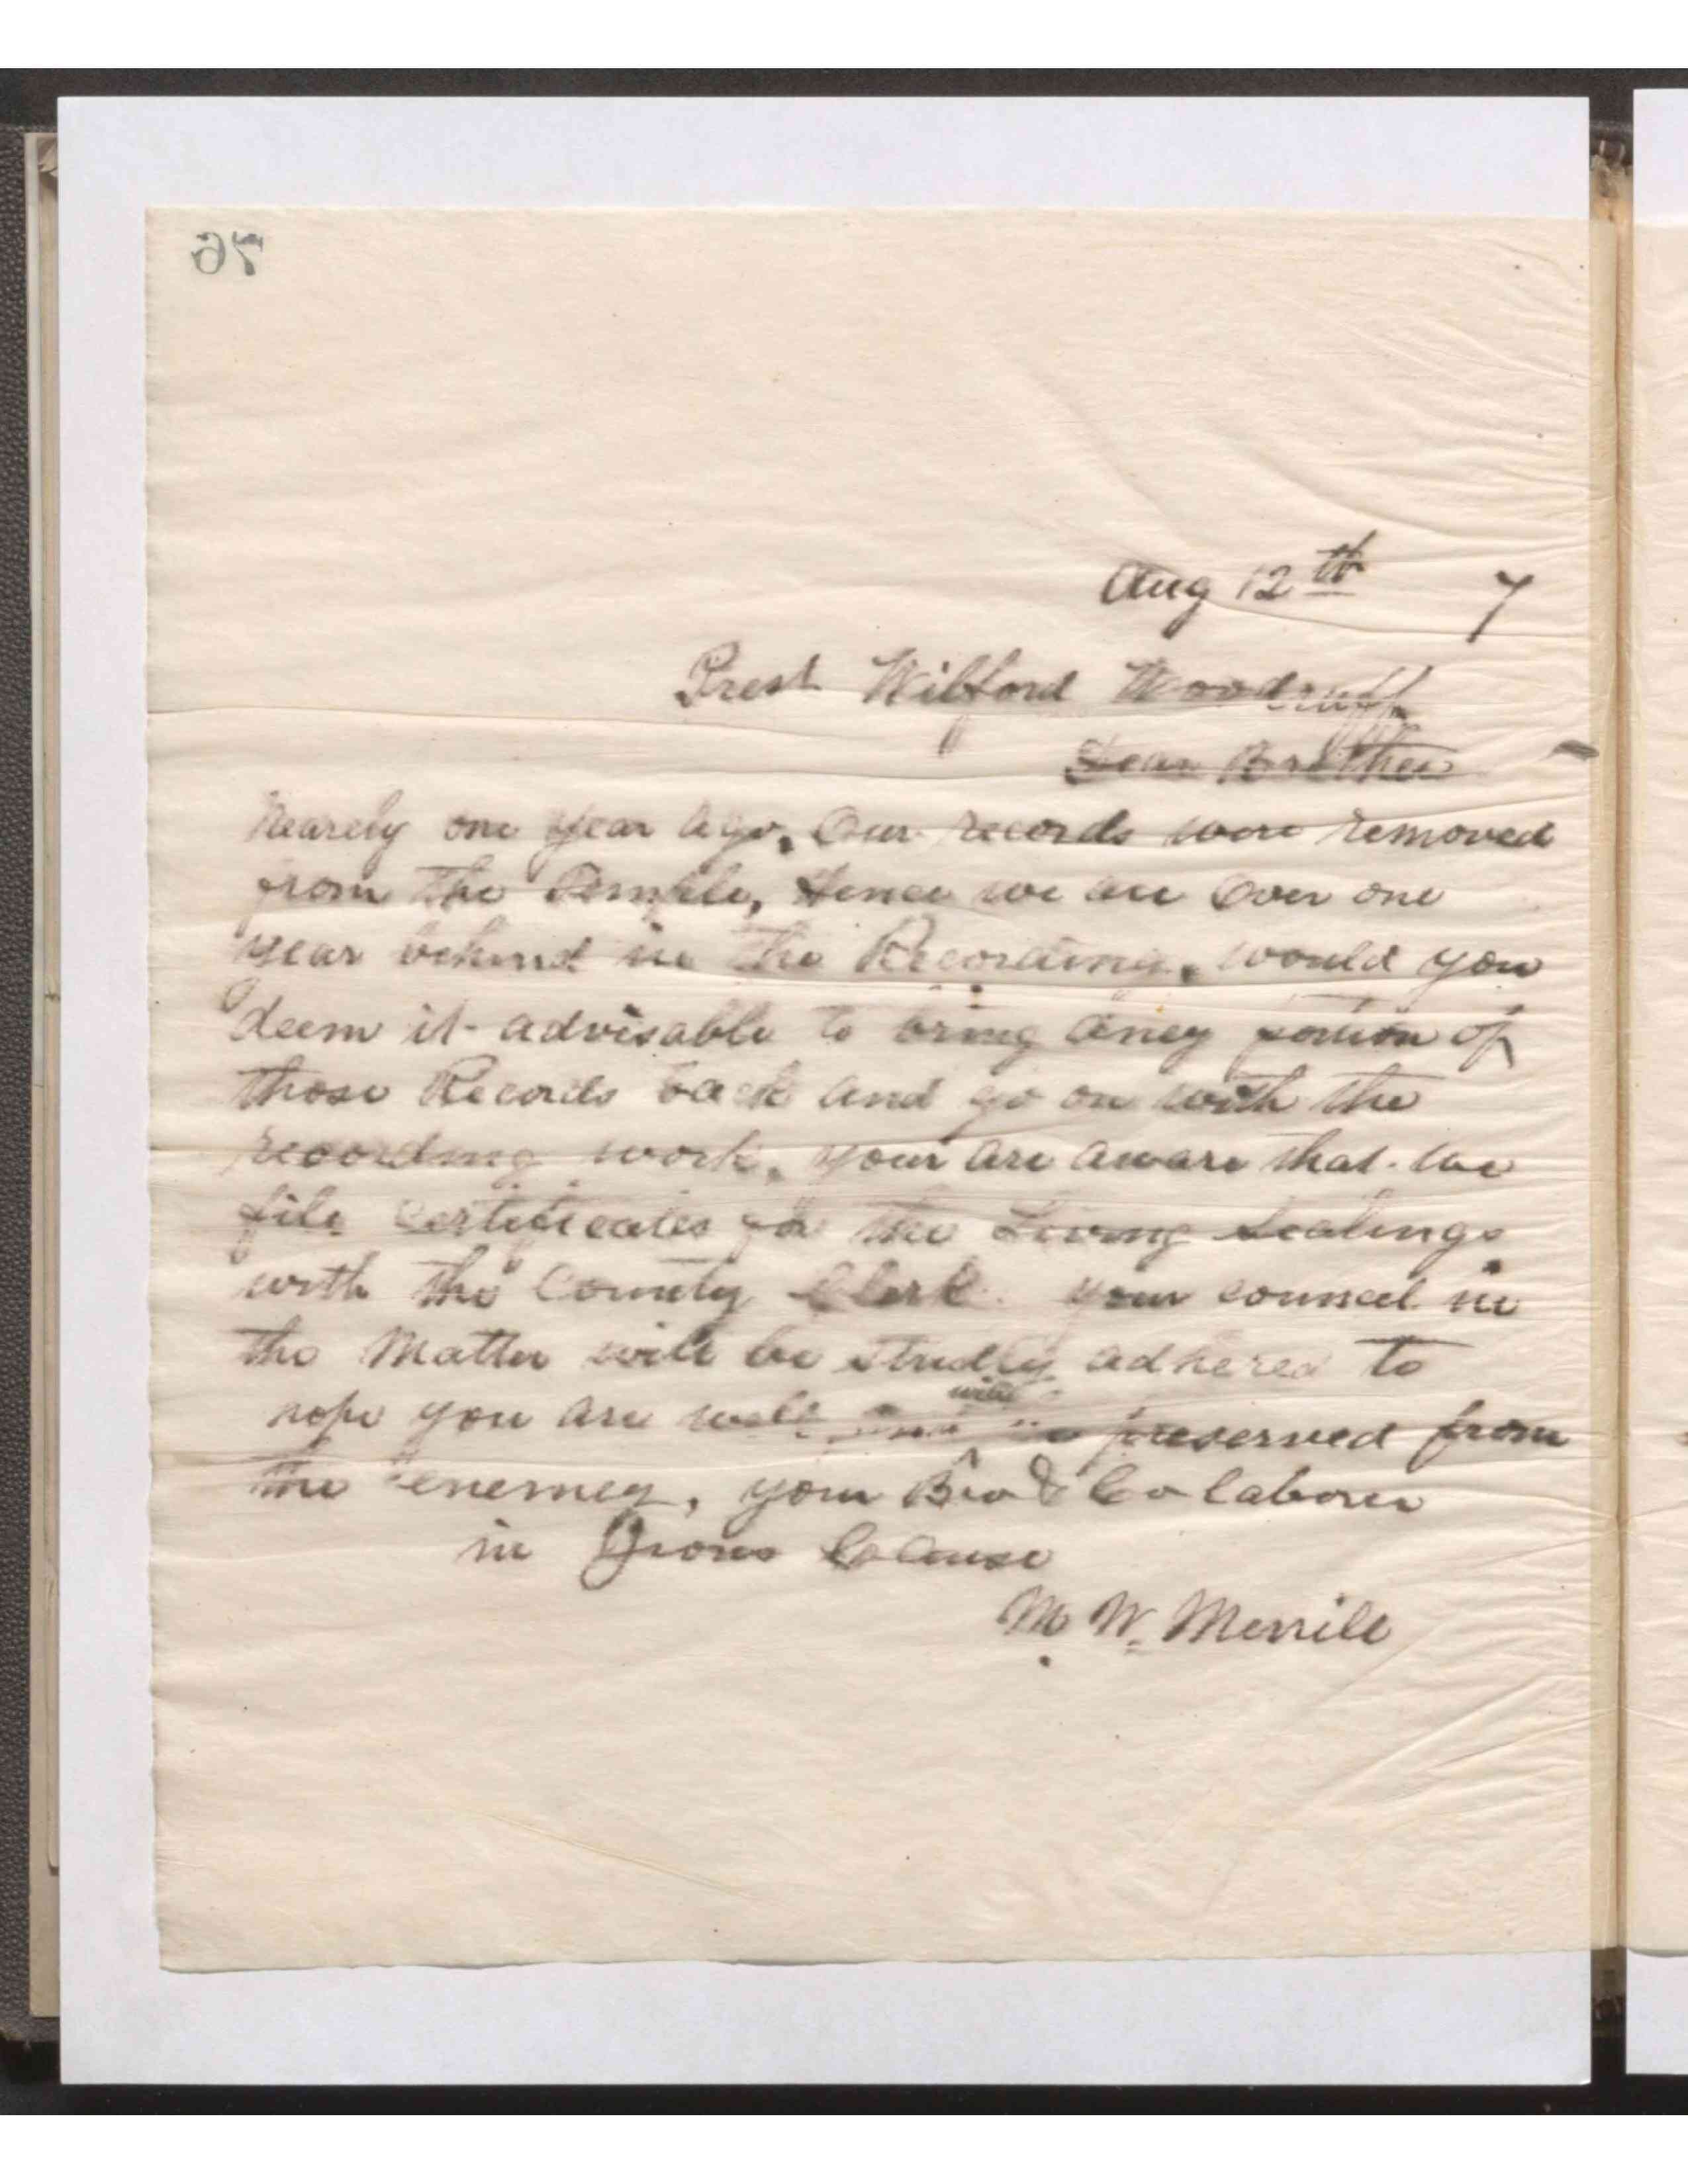 76
Aug 12th 7
Prest Wilford Woodruff
Dear Brother
Nearely one year ago, Our records were removed
from the Temple, Hence we are Over one
year behind in the Recording, would you
deem it advisable to bring aney portion of
those Records back and go on with the
recording work, your are aware that we
file Certificates for the Living Sealings
with the County Clerk. your councel in
the Matter will be strictly adhered to
hope you are well and will preserved from
the enemey, your Bro & Co laborer
in Zions Cause
M. W. Merrill